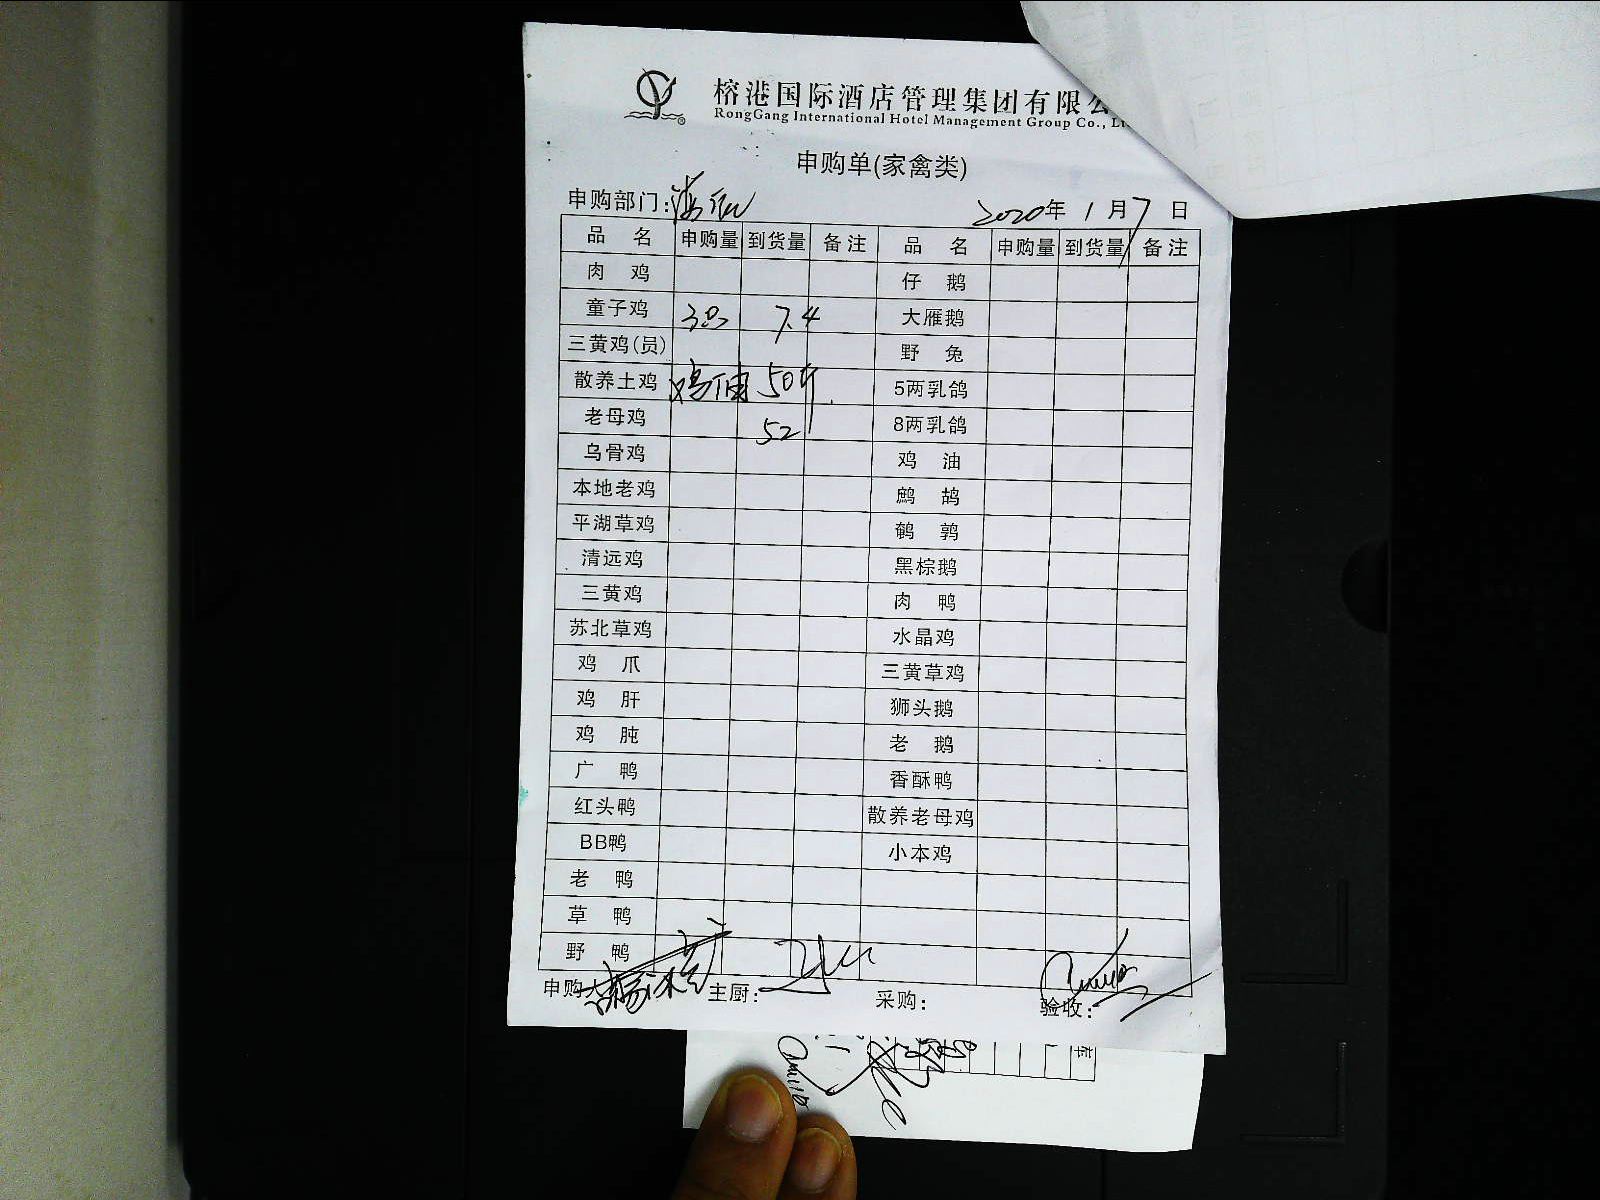 榕港国际酒店管理集团有限公
RongGang International Hotel Management Group Co., Lt
申购单(家禽类)
申购部门: 2020年 1月 7日
品 名 申购量 到货量 备注 品 名 申购量 到货量 备注
肉 鸡 仔 鹅
童子鸡 3只 7.4 大雁鹅
三黄鸡(员) 野 兔
散养土鸡 鸡油 50斤 5两乳鸽
老母鸡 52 8两乳鸽
乌骨鸡 鸡 油
本地老鸡 鹧 鸪
平湖草鸡 鹌 鹑
清远鸡 黑棕鹅
三黄鸡 肉 鸭
苏北草鸡 水晶鸡
鸡 爪 三黄草鸡
鸡 肝 狮头鹅
鸡 肫 老 鹅
广 鸭 香酥鸭
红头鸭 散养老母鸡
BB鸭 小本鸡
老 鸭
草 鸭
野 鸭
申购人 主厨: 采购: 验收:
库